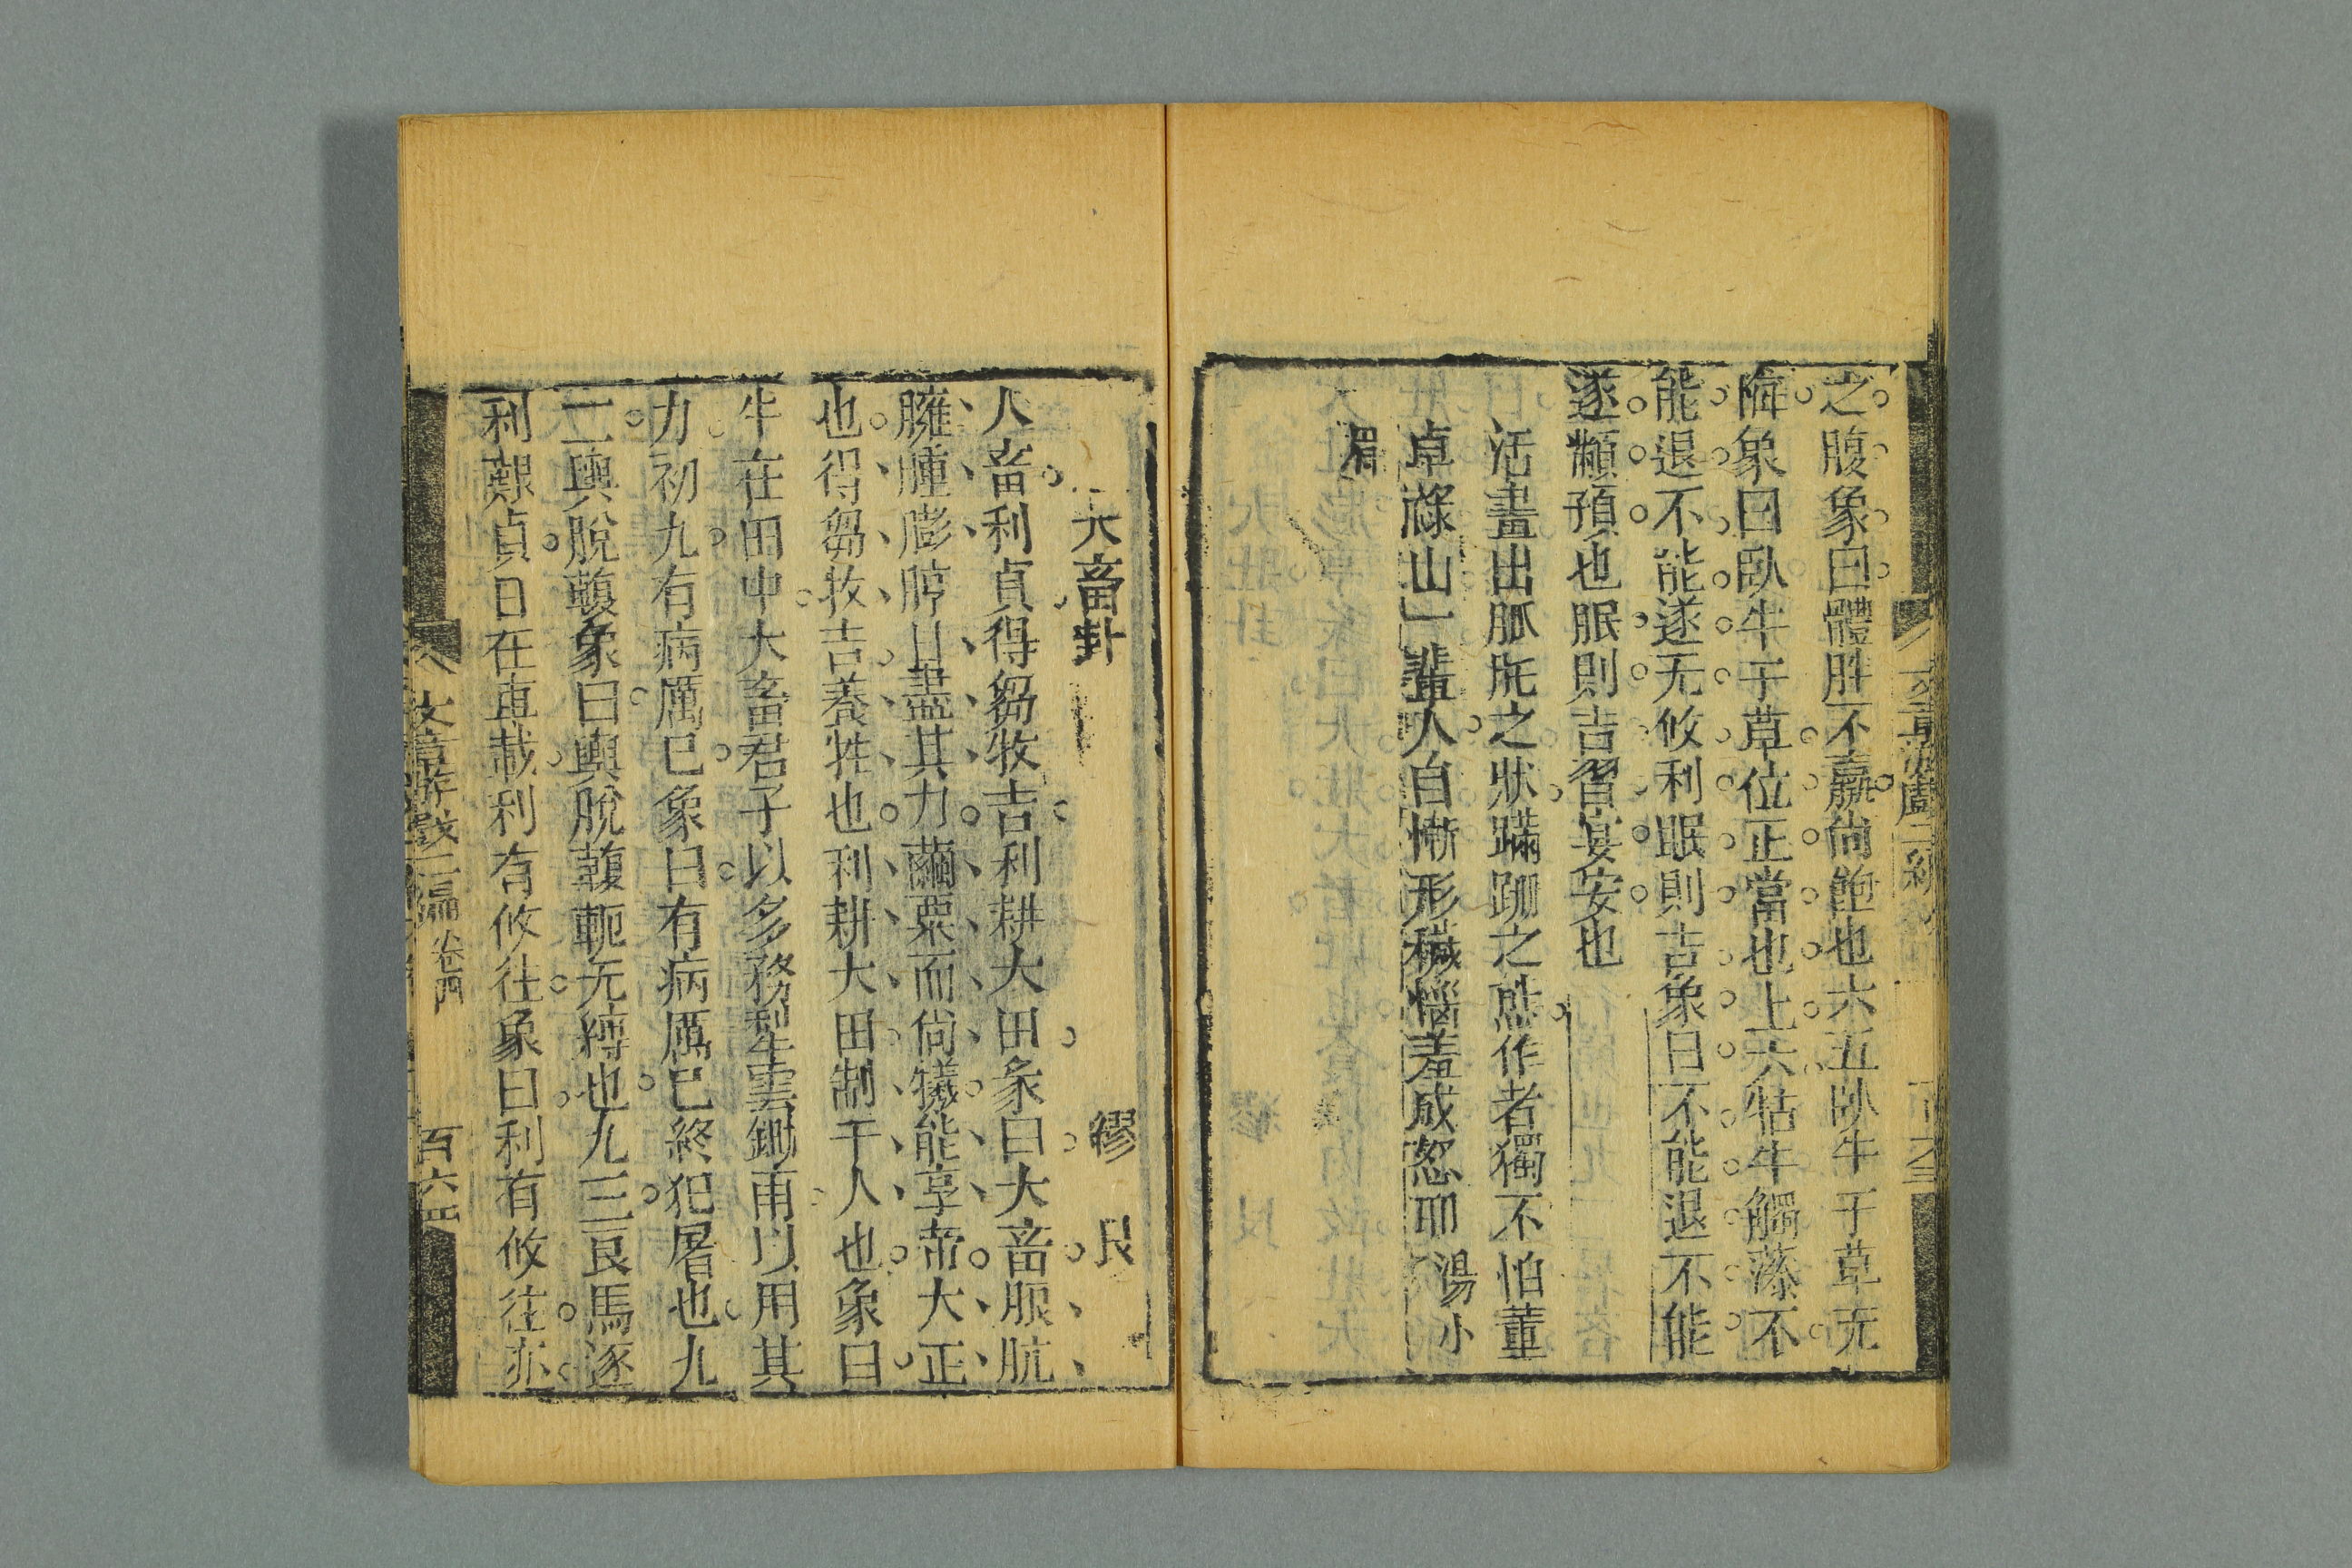 之腹象曰體胜不嬴尚飽也六五卧牛于草无
悔象曰臥牛于草位正當也上六牯牛觸藩不
能退不能遂无攸利眠則吉象曰不能退不能
遂顢頇也眠則吉習宴安也
活畫出臃肫之狀蹣跚之態作者獨不怕董
卓祿山一輩人自慚形穢惱羞成怒耶 湯小
眉
大畜卦 繆艮
大畜利貞得芻牧吉利耕大田彖曰大畜服肮
臃腫膨脝日盡其力繭粟而尚犧能享帝大正
也得芻牧吉養牲也利耕大田制于人也象曰
牛在田中大畜君子以多務犁雲鋤雨以用其
力初九有病厲巳象曰有病厲巳終犯屠也九
二輿脫輹象曰輿脫輹軛无縛也九三良馬逐
利艱貞日在車載利有攸往象曰利有攸往亦
文章游戲二編 卷四 百六四